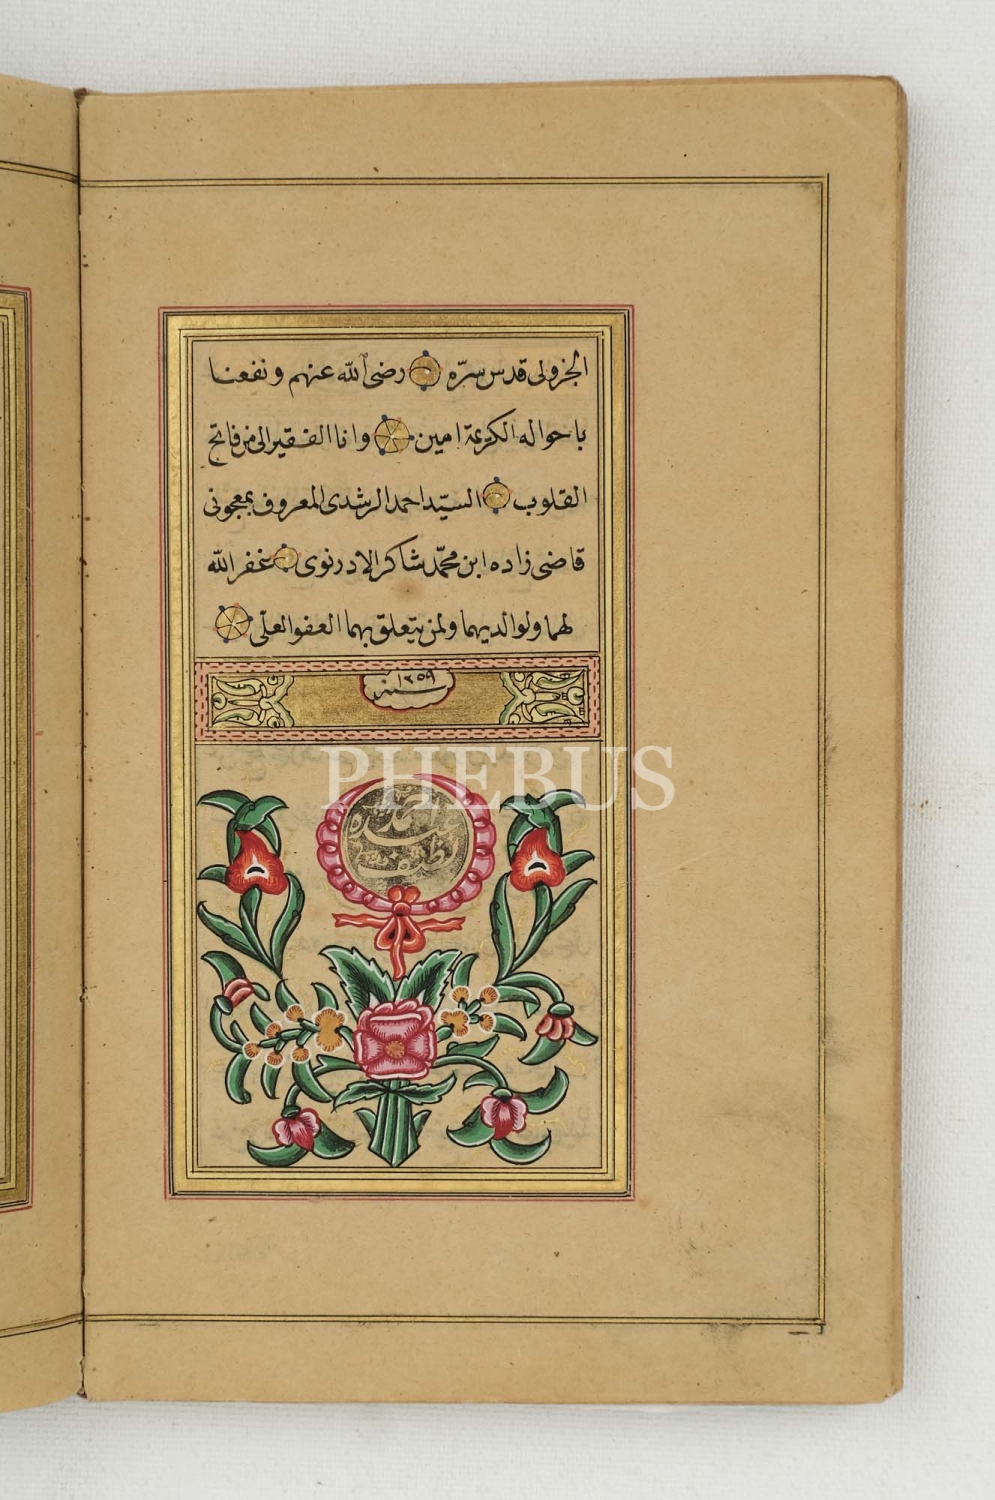 الجزولى قدس سرّه رضى الله عنهم ونفعنا
باحواله الكريمة امين وانا الفقير الى من فاتح
القلوب السيّد احمد الرشدى المعروف بمعجونى
قاضى زاده ابن محمّد شاكر الادرنوى غفر الله
لهما ولوالديهما ولمن يتعلق بهما العفو العلّى
سنة ١٢٥٩
PHEBUS